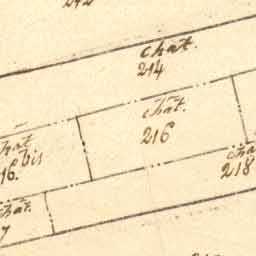 212
chat.
214
chat.
216
chat
bis
16.
chat
218
chat.
7